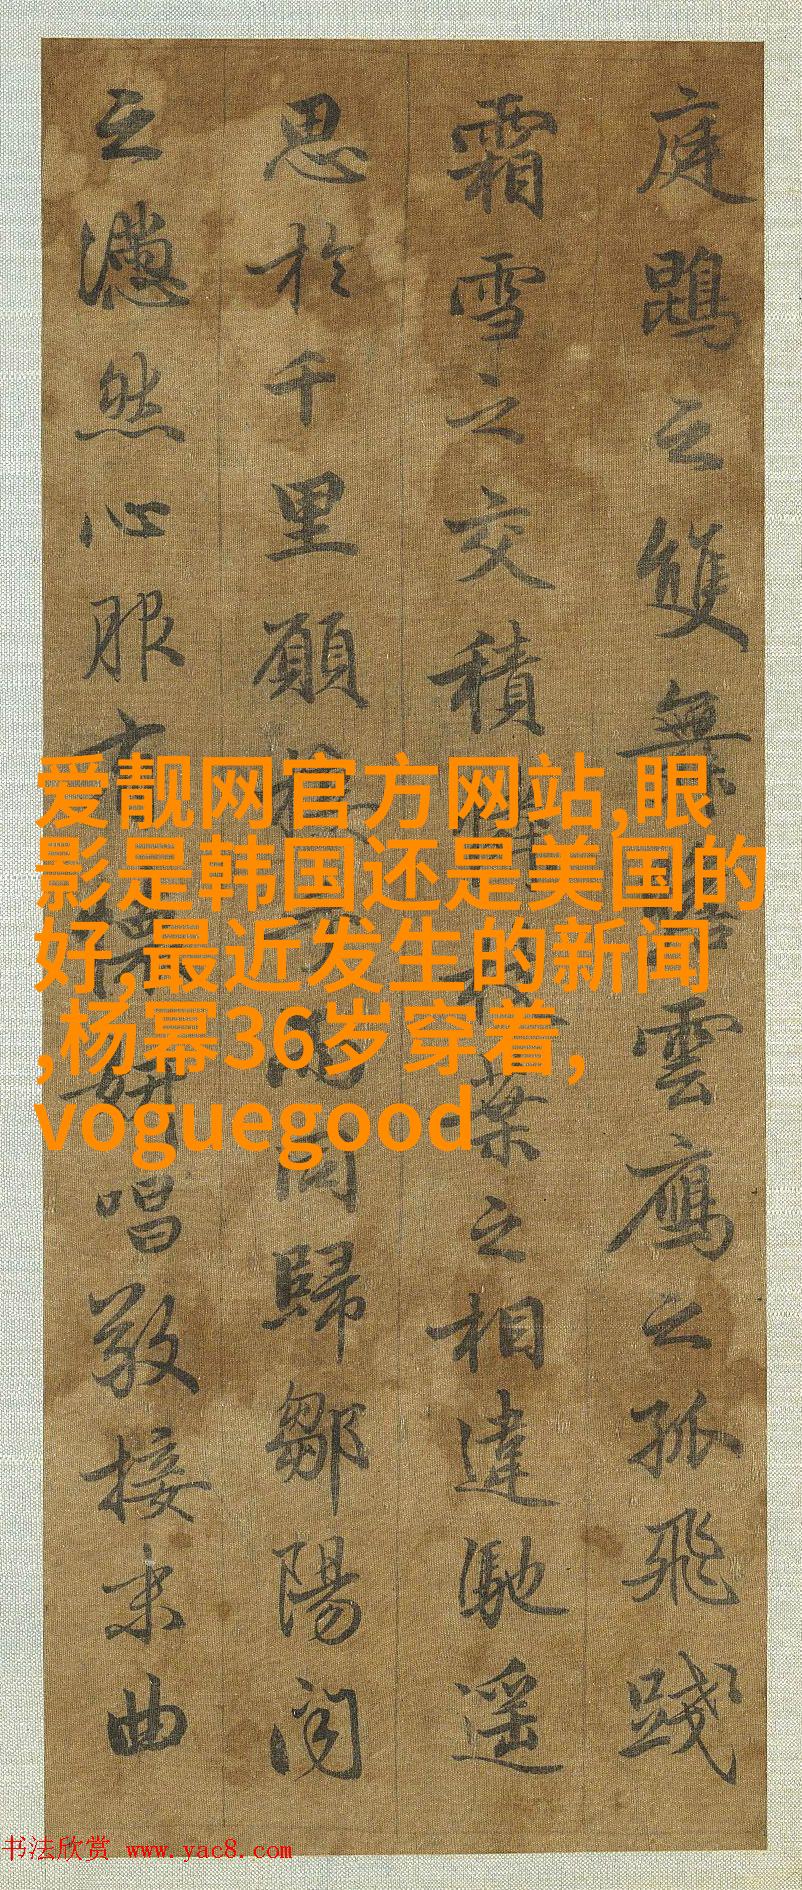 庭鵾之雙舞雲鴈之孤飛踐
霜雪之交積葉之相違馳遥
思於千里願同歸鄒陽聞
之懣然心服妍唱敬接末曲
爱靓网官方网站,眼
影是韩国还是美国的
好,最近发生的新闻
,杨幂36岁穿着,
voguegood
书法欣赏 www.yac8.com